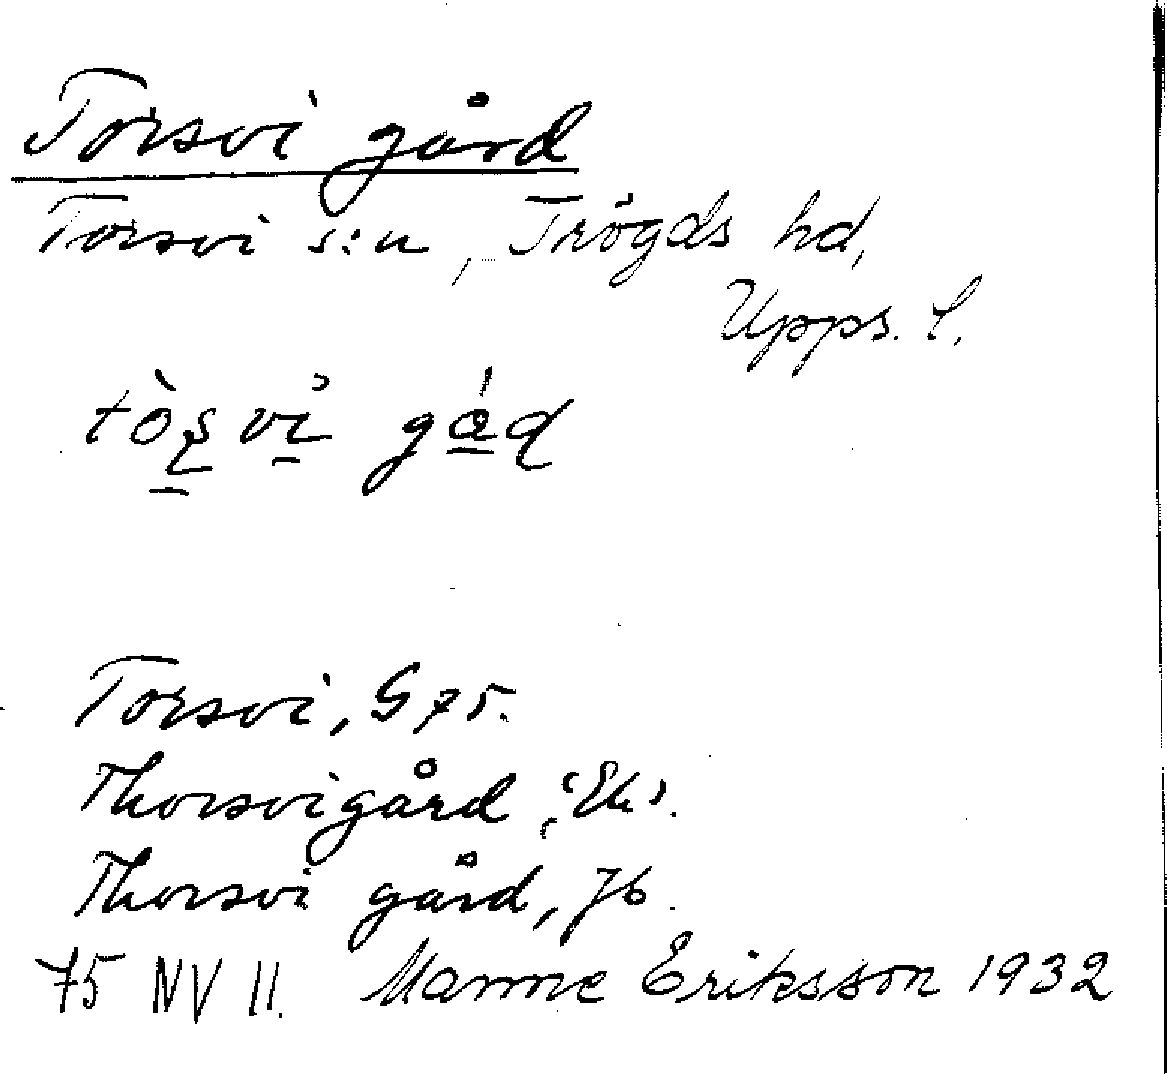 Torsvi gård
Torsvi s:n, Trögds hd,
Upps. l.
tò̱ʂvi̱ gǻ̱ɖ
Torsvi, G 75.
Thorsvigård, Ek.
Thorsvi gård, Jb.
75 NV II. Manne Eriksson 1932